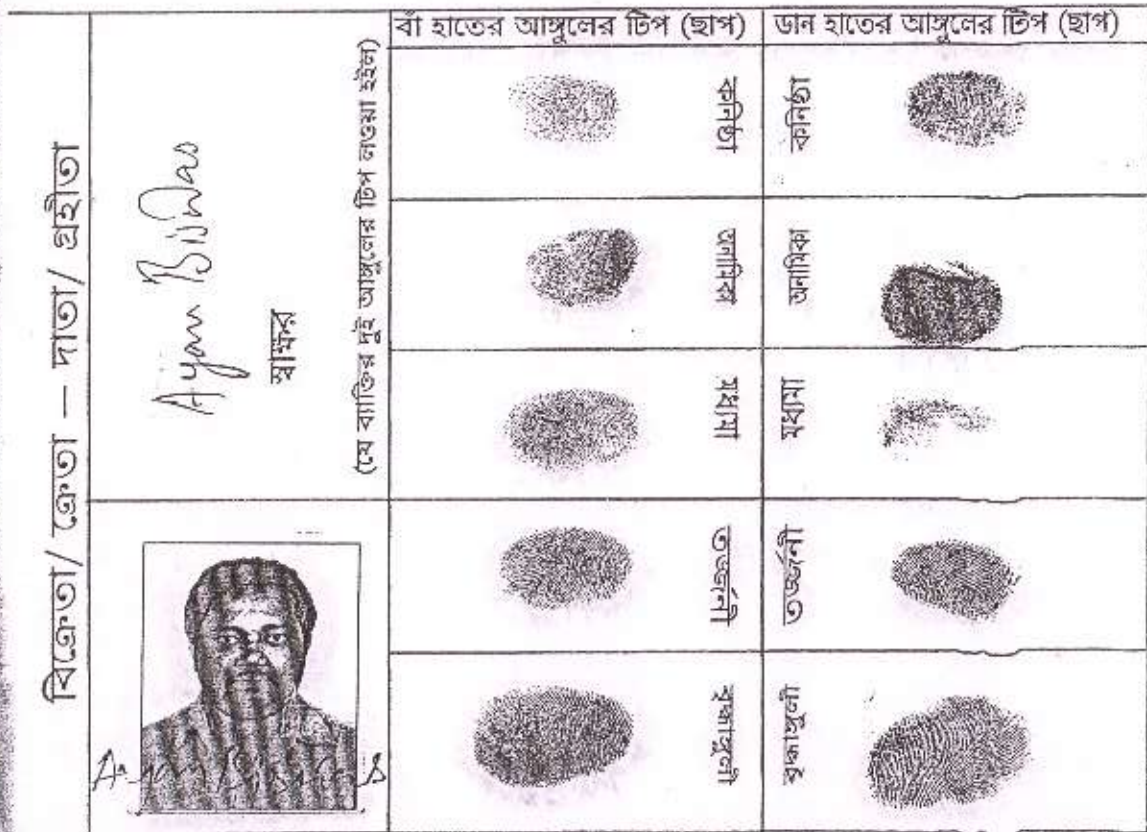 বিক্রেতা/ ক্রেতা — দাতা/ গ্রহীতা
Ayan Biswas
স্বাক্ষর
(যে ব্যক্তির দুই আঙ্গুলের টিপ লওয়া হইল)
বাঁ হাতের আঙ্গুলের টিপ (ছাপ)
ডান হাতের আঙ্গুলের টিপ (ছাপ)
কনিষ্ঠা
কনিষ্ঠা
অনামিকা
অনামিকা
মধ্যমা
মধ্যমা
তর্জ্জনী
তর্জ্জনী
বৃদ্ধাঙ্গুলী
বৃদ্ধাঙ্গুলী